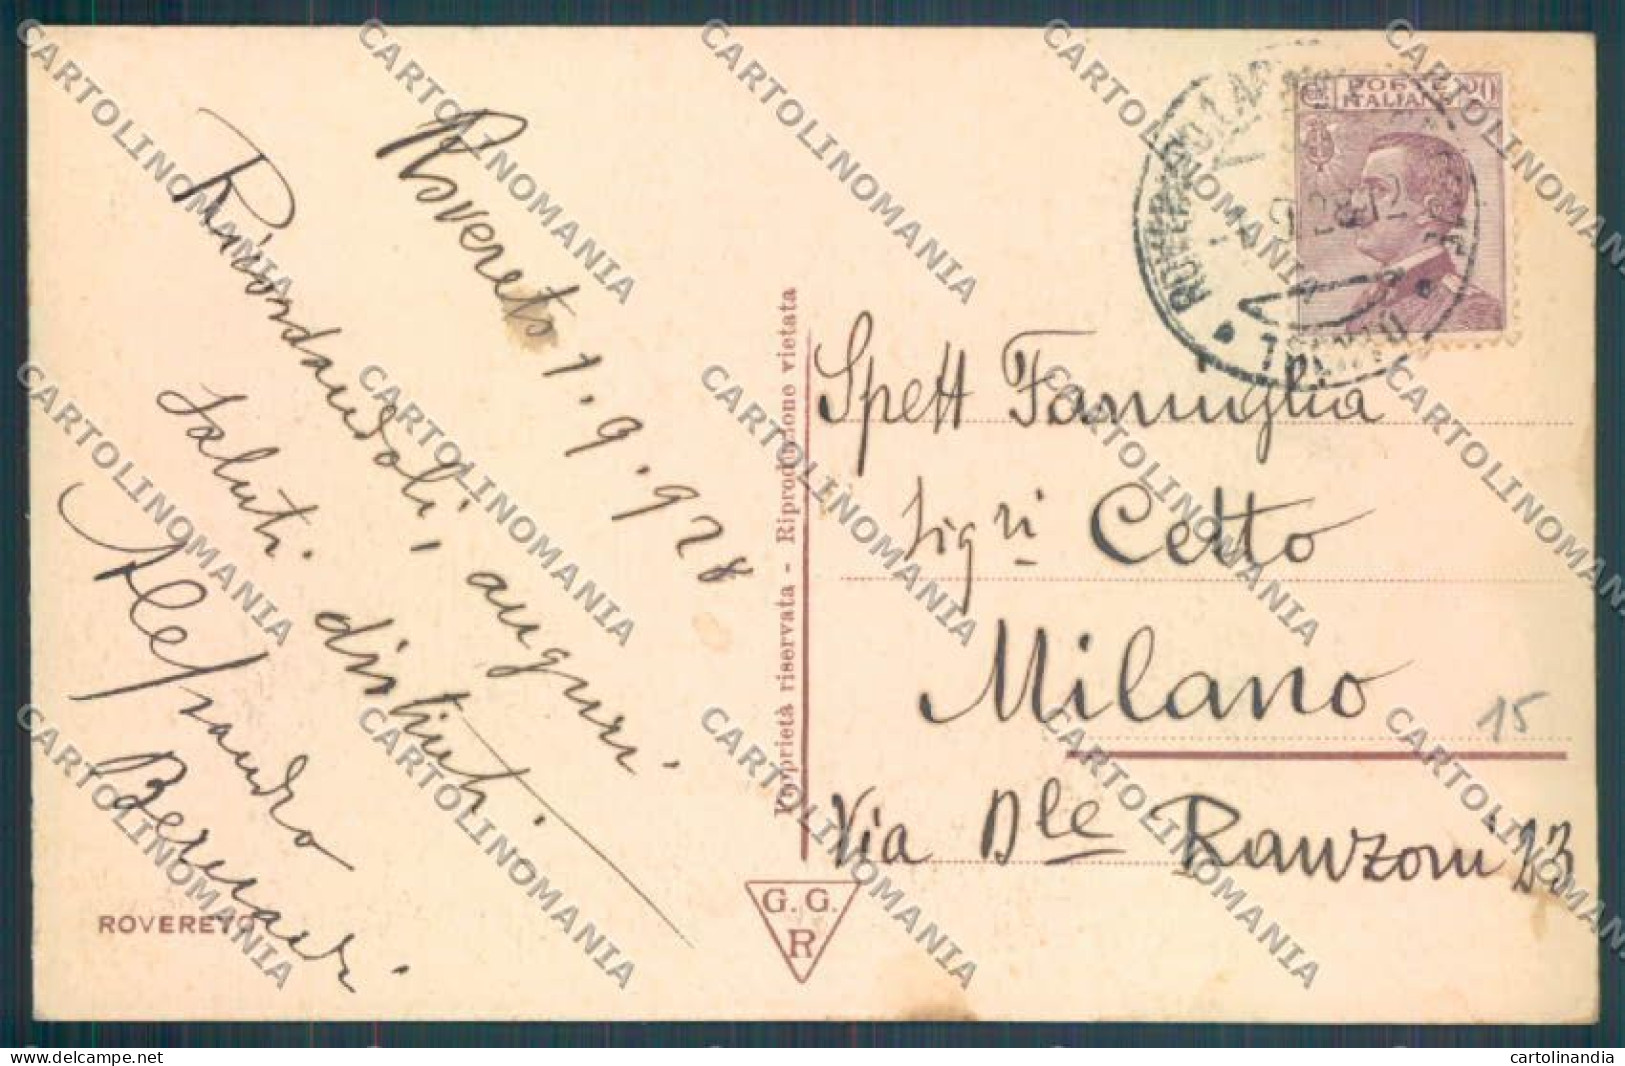 Rovereto 1.9.928
Ricordandoli, auguri.
Saluti distinti.
Alessandro
Bernardi.
ROVERETO
Proprietà riservata - Riproduzione vietata
G. G.
R
CEN POSTE 20
ITALIANE
Spett Famiglia
Sigri Cetto
Milano
15
Via Dle Ranzoni 23
CARTOLINOMANIA
cartolinandia
www.delcampe.net